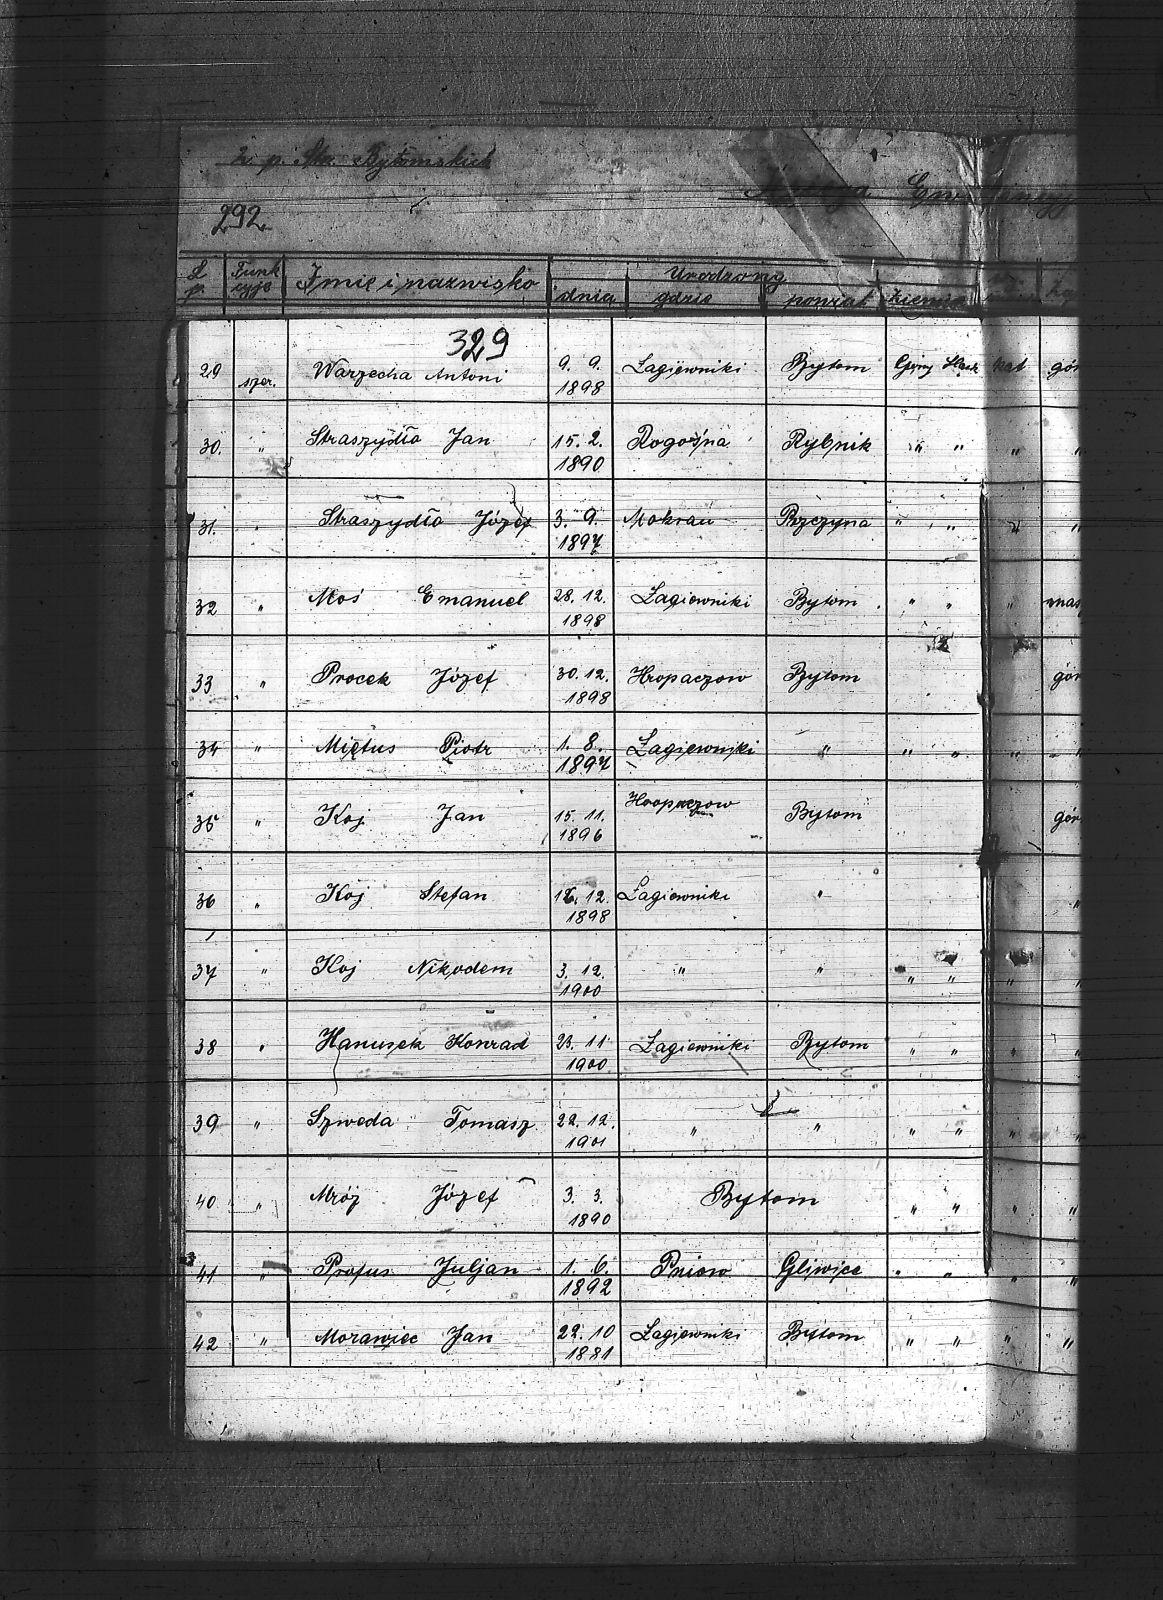 2 p. Strz. Bytomskich
292
L p. Funk cyje Imię i nazwisko Urodzony
dnia gdzie powiat ziemia
329
29 szer. Warzecha Antoni 9. 9. 1898 Łagiewniki Bytom Górny Śląsk kat gór
30. " Straszydło Jan 15. 2. 1890 Rogoźna Rybnik " " " "
31. " Straszydło Józef 3. 9. 1897 Mokrau Pszczyna " " " "
32 " Moś Emanuel 28. 12. 1898 Łagiewniki Bytom " " " mas
33 " Procek Józef 30. 12. 1898 Hropaczow Bytom gór
34 " Miętus Piotr 1. 8. 1897 Łagiewniki " " " " "
35 " Koj Jan 15. 11. 1896 Hropaczow Bytom gór
36 " Koj Stefan 16. 12. 1898 Łagiewniki " "
37 " Koj Nikodem 3. 12. 1900 " " " " " "
38 " Hanusek Konrad 23. 11 1900 Łagiewniki Bytom " " " "
39 " Szweda Tomasz 22. 12. 1901 " " " " " "
40 " Mróz Józef 3. 3. 1890 Bytom " " " "
41 " Profus Juljan 1. 6. 1892 Pniow Gliwice " " " "
42 " Morawiec Jan 22. 10 1881 Łagiewniki Bytom " " " "